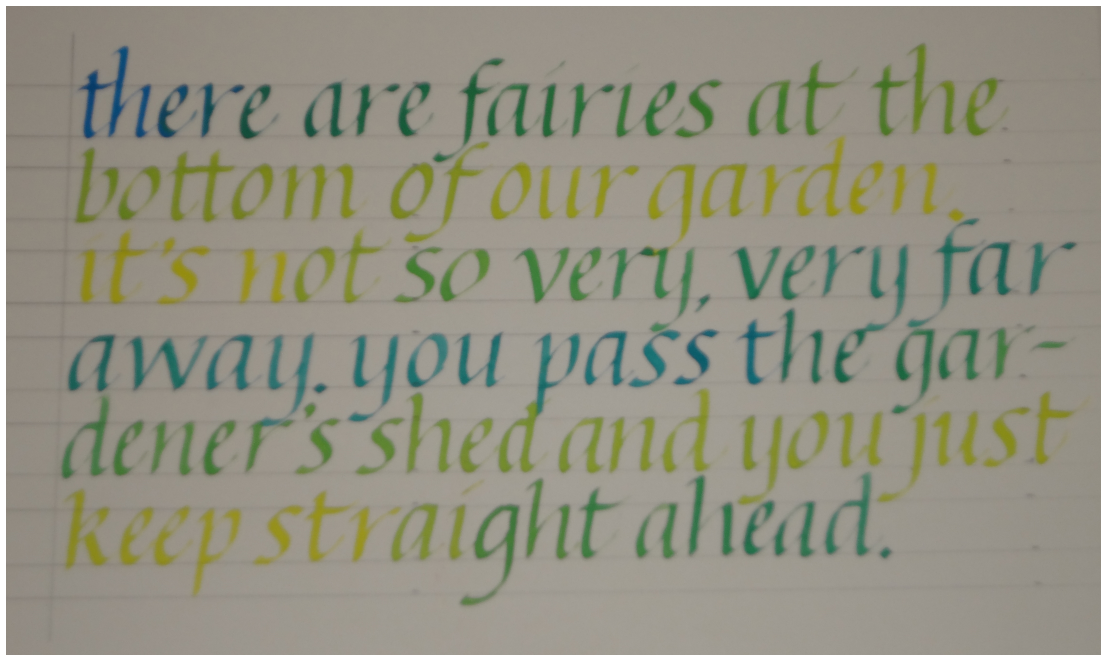 there are fairies at the
bottom of our garden.
it's not so very, very far
away. you pass the gar-
dener's shed and you just
keep straight ahead.